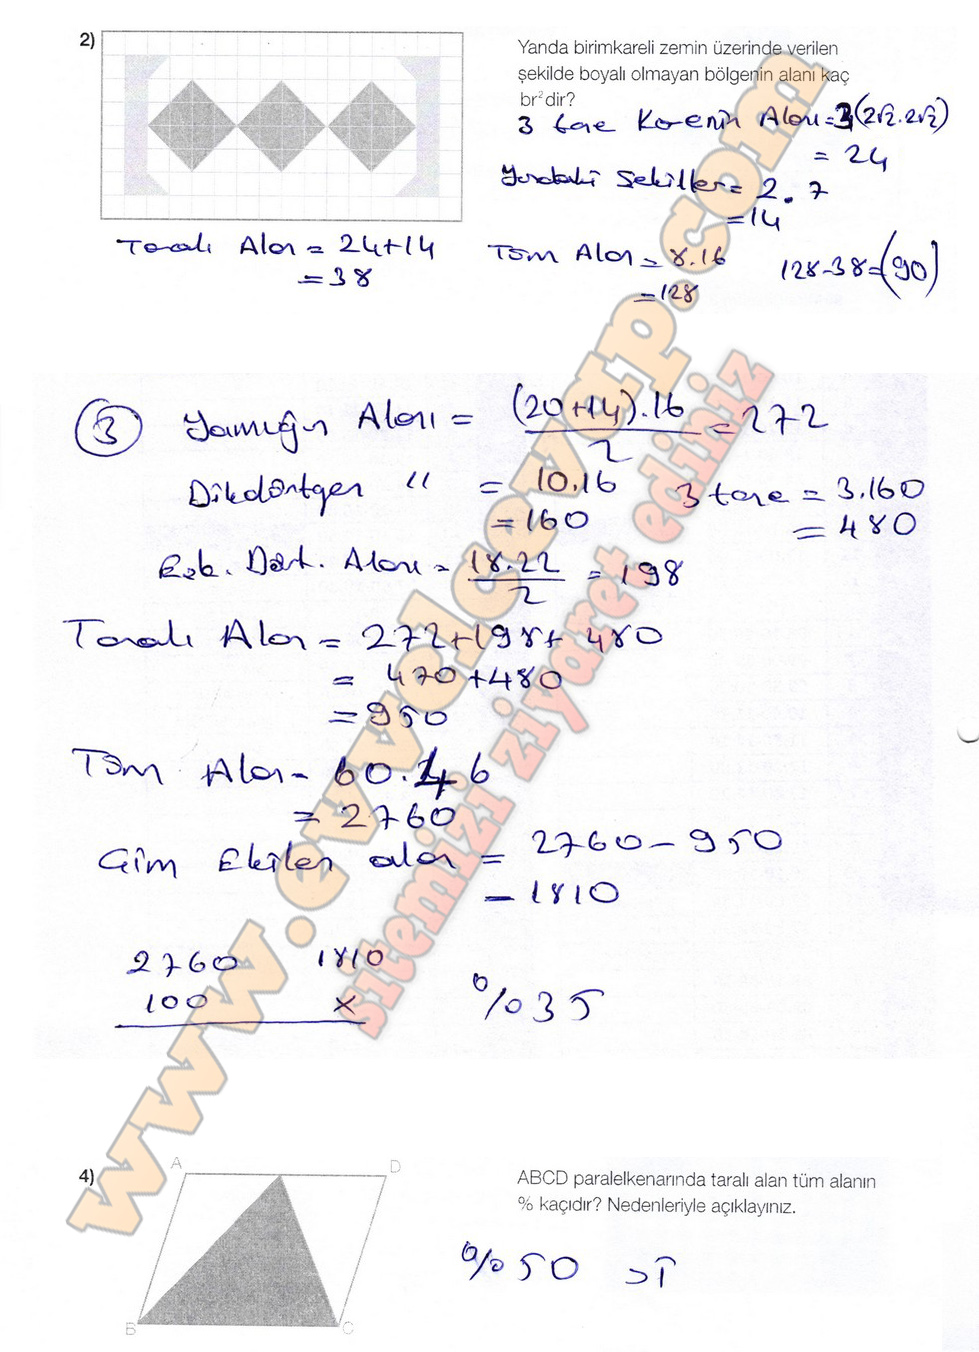 2)
Yanda birimkareli zemin üzerinde verilen
şekilde boyalı olmayan bölgenin alanı kaç
br²dir?
3 tane Karenin Alanı=3(2√2.2√2)
= 24
Yandaki Şekiller = 2.7
=14
Taralı Alan = 24+14
=38
Tüm Alan = 8.16
=128
128-38=(90)
3 Yamuğun Alanı = (20+14).16 / 2 = 272
Dikdörtgen " = 10.16
=160
3 tane = 3.160
= 480
Eşk. Dört. Alanı = 18.22 / 2 = 198
Taralı Alan = 272+198+480
= 470+480
=950
Tüm Alan = 60.46
= 2760
Çim Ekilen alan = 2760-950
= 1810
2760 1810
100 x
%35
4)
A D
B C
ABCD paralelkenarında taralı alan tüm alanın
% kaçıdır? Nedenleriyle açıklayınız.
%50 si
www.evvelcevap.com
sitemizi ziyaret ediniz